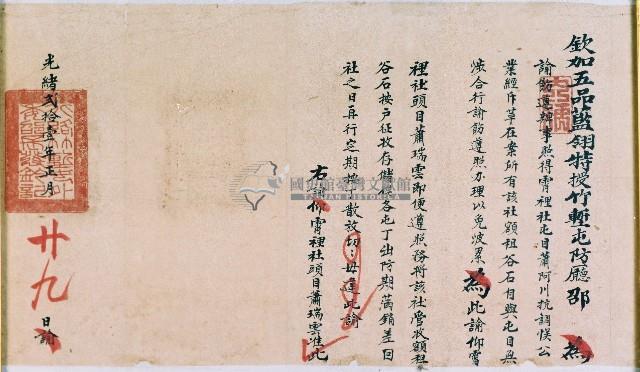 欽加五品藍翎特授竹塹屯防廳邵 為
諭飭遵辦事照得霄裡社屯目蕭阿川抗調悞公
業經斥革在案所有該社額租谷石自與屯目無
涉合行諭飭遵照办理以免波累為此諭仰霄
裡社頭目蕭瑞雲即便遵照務將該社應收額租
谷石按戶征收存儲候各屯丁出防期滿銷差回
社之日再行定期按丁散放切切毋違此諭
右諭仰霄裡社頭目蕭瑞雲准此
光緒貳拾壹年正月
廿九
日諭
國史館臺灣文獻館
TAIWAN HISTORICA